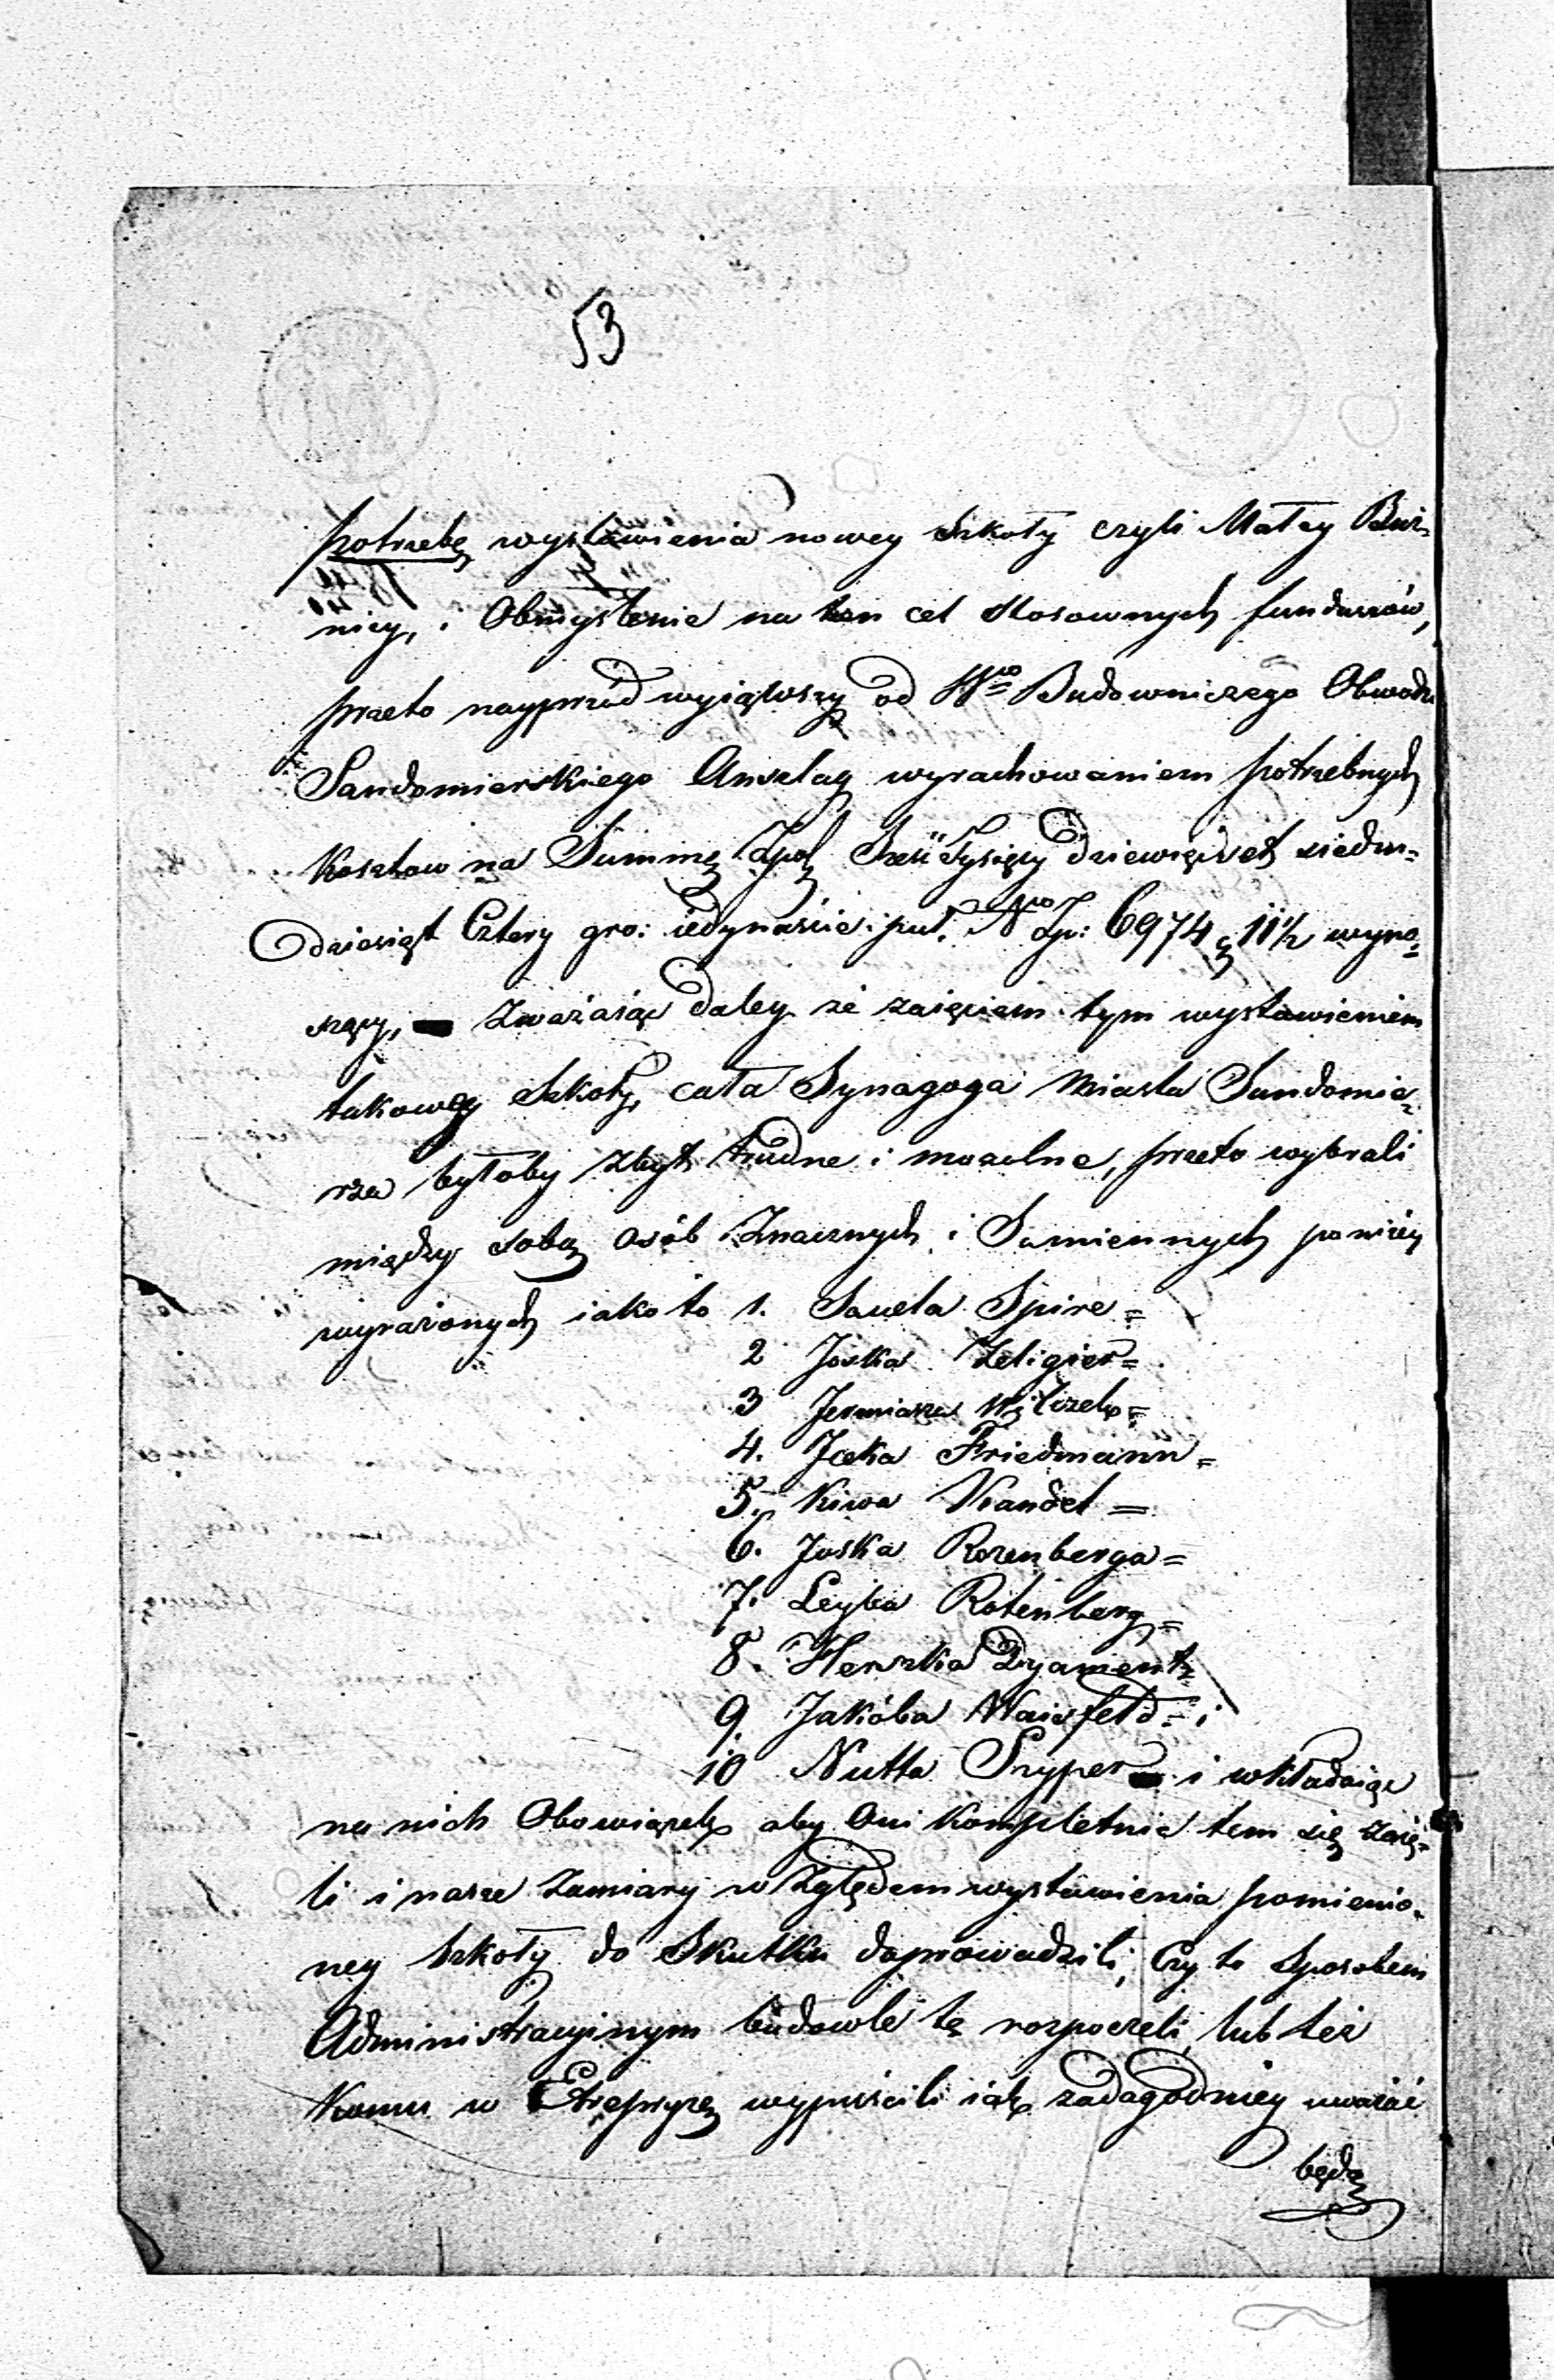 53
potrzebę wystawienia nowey Szkoły czyli Małey Buż-
nicy, i Obmyślenie na ten cel stosownych funduszów,
przeto nayprzód wyiąwszy od Wgo Budowniczego Obwodu
Sandomierskiego Anszlag wyrachowaniem potrzebnych
kosztow na Summę Zpol Sześć Tysięcy dziewięćset siedm-
dziesiąt Cztery gro: iedynaście i puł. Nro Zp: 6974 g 11½ wyno-
szący, zważaiąc daley że zaięciem tym wystawieniem
takowey Szkoły, cała Synagoga Miasta Sandomie-
rza byłoby zbyt trudne i mozolne, przeto wybrali
między sobą osób Znacznych i Sumiennych poniżey
wyrażonych iako to 1. Sawela Spire=
2 Joska Zeligier=
3 Jermiasza Wilczek=
4. Jcka Friedmann=
5. Kiwa Wandel=
6. Joska Rozenberga=
7. Leyba Rotenberg=
8. Herszka Dyament=
9. Jakóba Waisfeld= i
10 Nutta Szyper i wkładaiąc
na nich Obowiązek aby Oni kompletnie tem się zaię-
li i nasze zamiary w Zględem wystawienia pomienio-
ney Szkoły do Skutku doprowadzili, Czy to Sposobem
Administracyinym budowle tę rozpoczeli, lub też
komu w Etrepryzę wypuścili iak zadogodniey uważać
będą